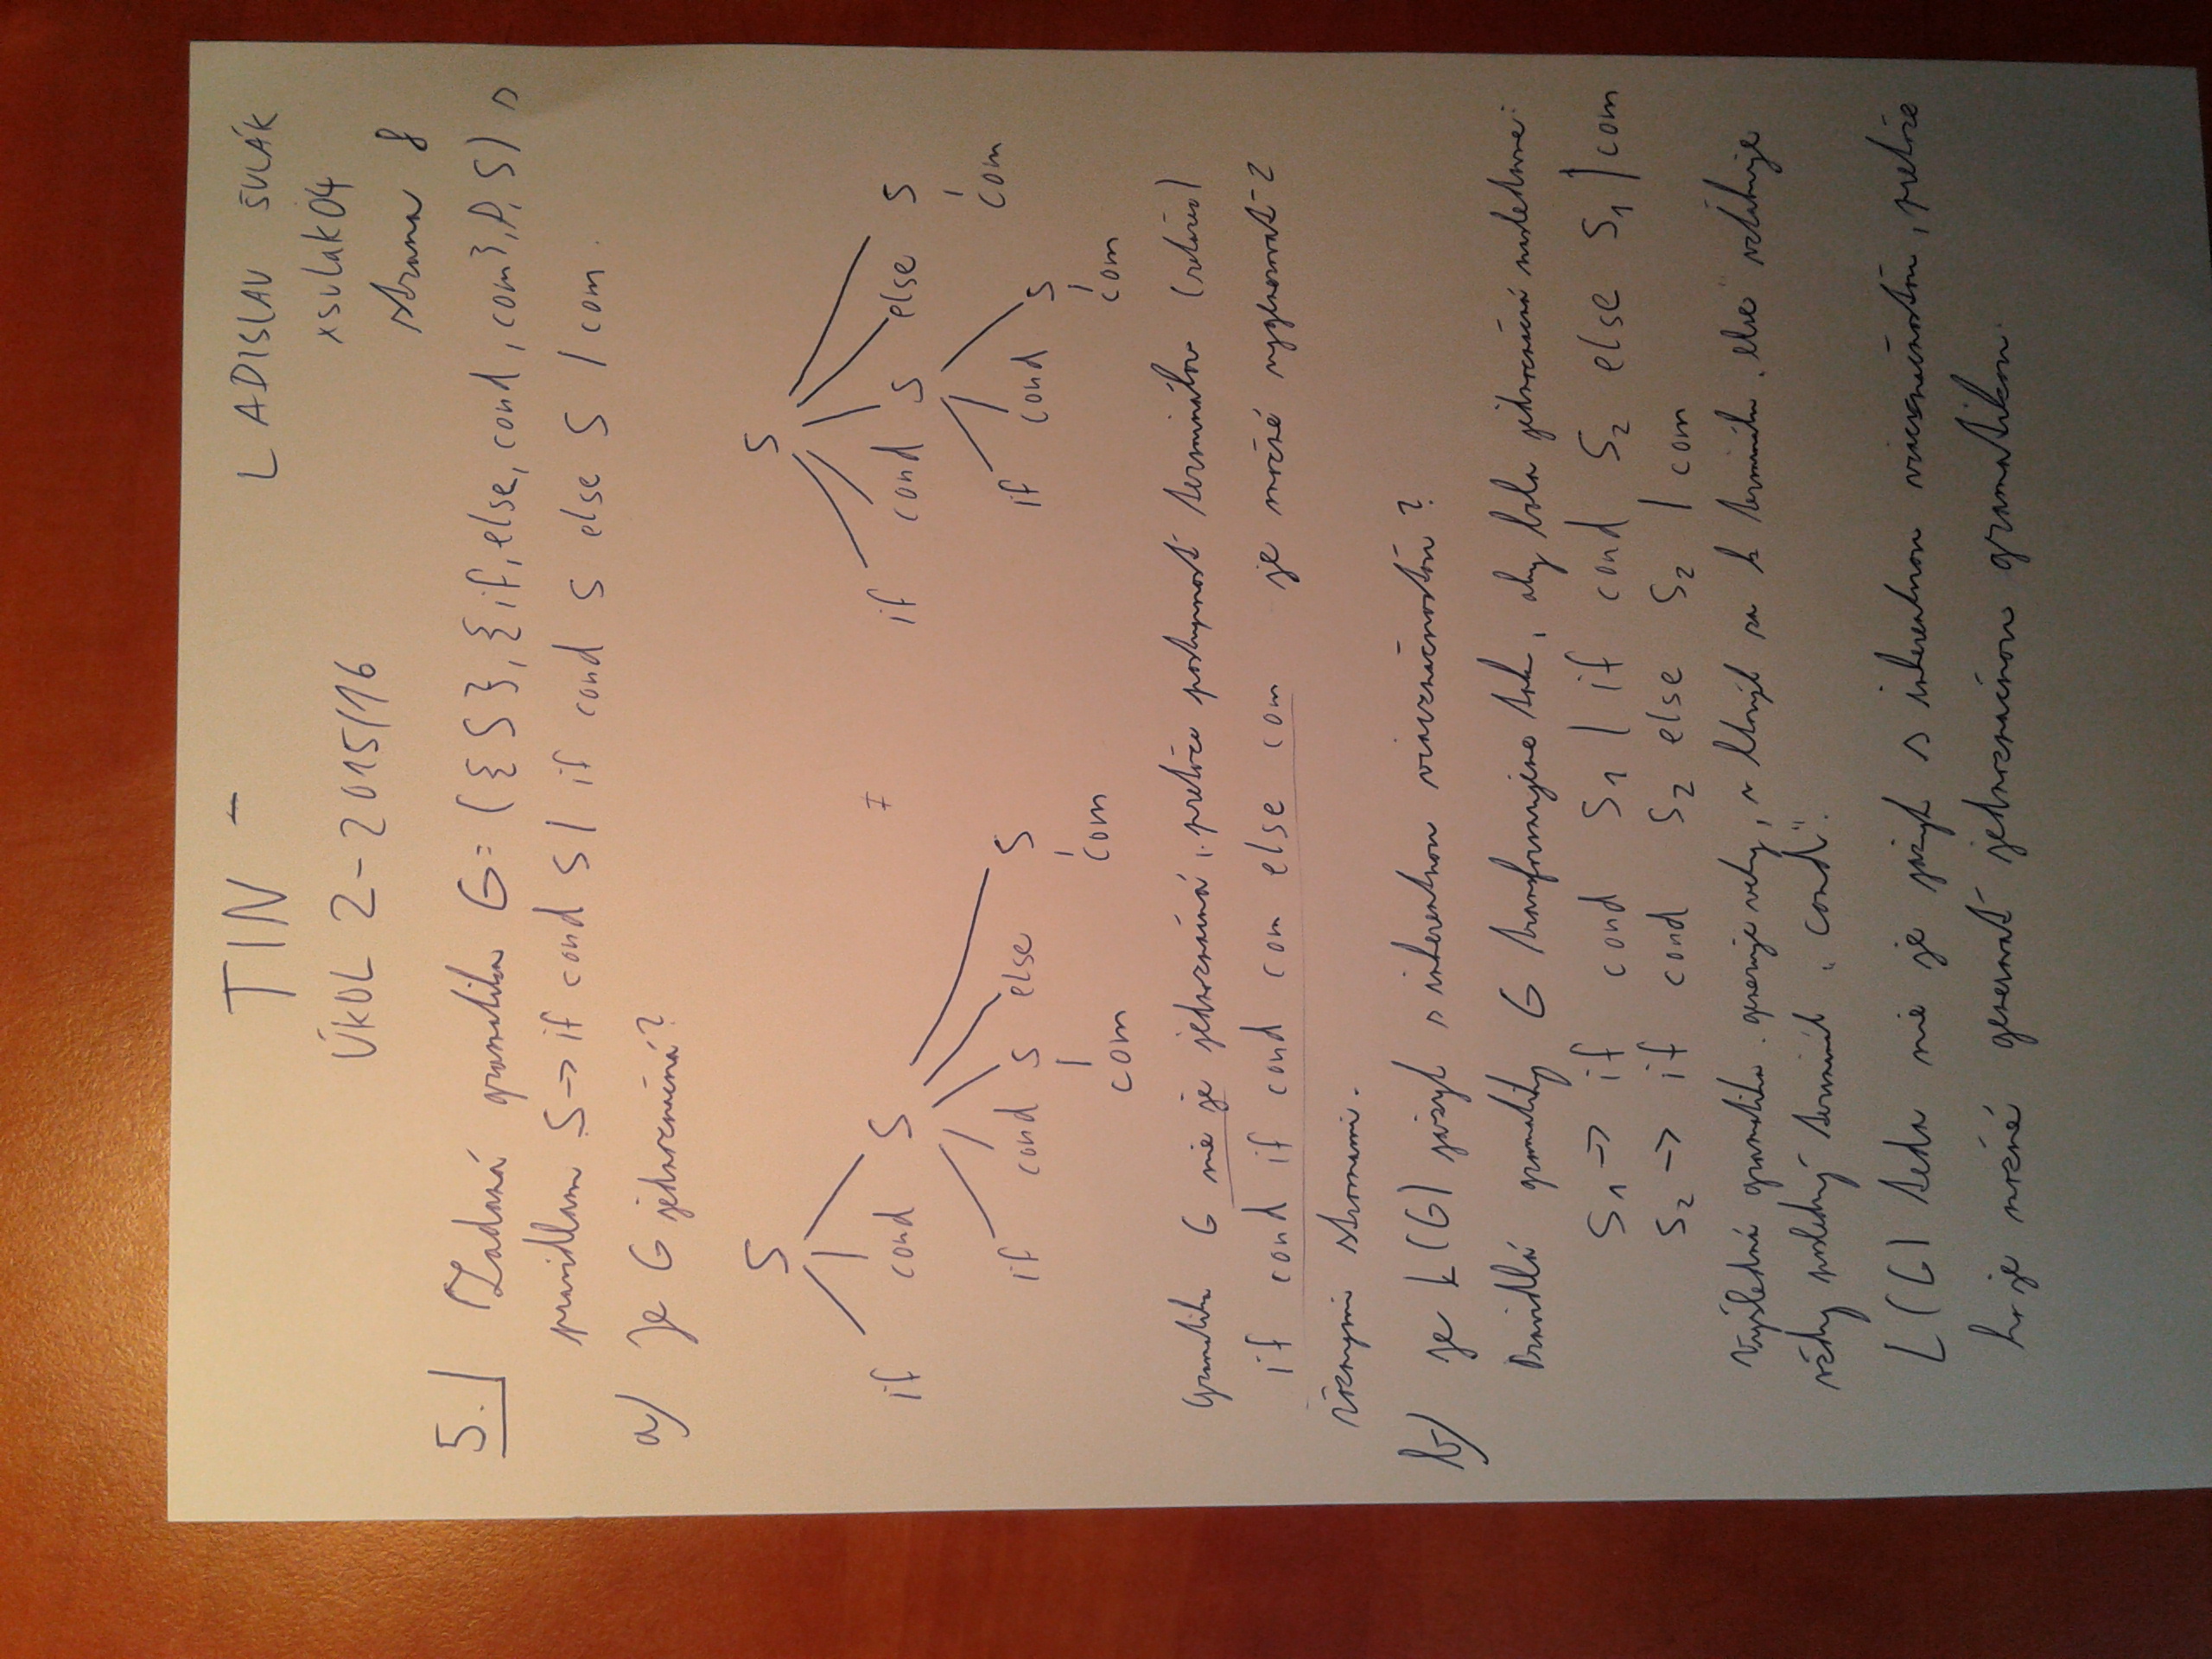 TIN -
LADISLAV SULÁK
ÚKOL 2 - 2015/16
xsulak04
strana 8
5. Zadaná gramatika G = ({S}, {if, else, cond, com}, P, S) s
pravidlami S -> if cond S | if cond S else S | com.
a) Je G jednoznačná?
S S
if cond S if cond S else S
com
if cond S else S if cond S
com com com
Gramatika G nie je jednoznačná, pretože postupnosť terminálov (reťazec)
if cond if cond com else com je možné vygenerovať 2
rôznymi stromami.
b) je L(G) jazyk s inherentnou viacznačnosťou?
Pravidlá gramatiky G transformujeme tak, aby bola jednoznačná nasledovne:
S1 -> if cond S1 | if cond S2 else S1 | com
S2 -> if cond S2 else S2 | com
Výsledná gramatika generuje vety, v ktorých sa k terminálu „else" vzťahuje
vždy posledný terminál „cond".
L(G) teda nie je jazyk s inherentnou viacznačnosťou, pretože
ho je možné generovať jednoznačnou gramatikou.